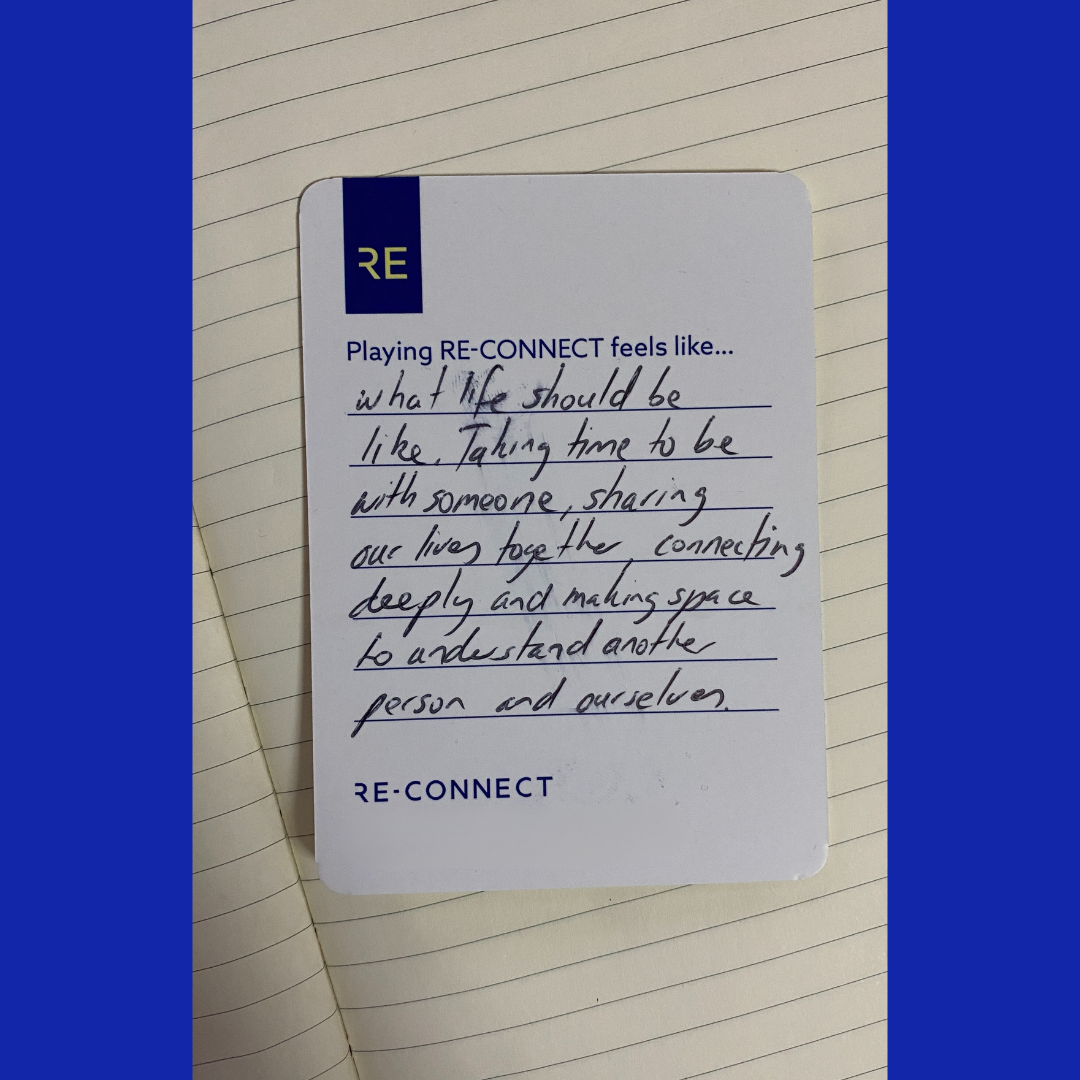 RE
Playing RE-CONNECT feels like...
what life should be
like. Taking time to be
with someone, sharing
our lives together, connecting
deeply and making space
to understand another
person and ourselves.
RE-CONNECT